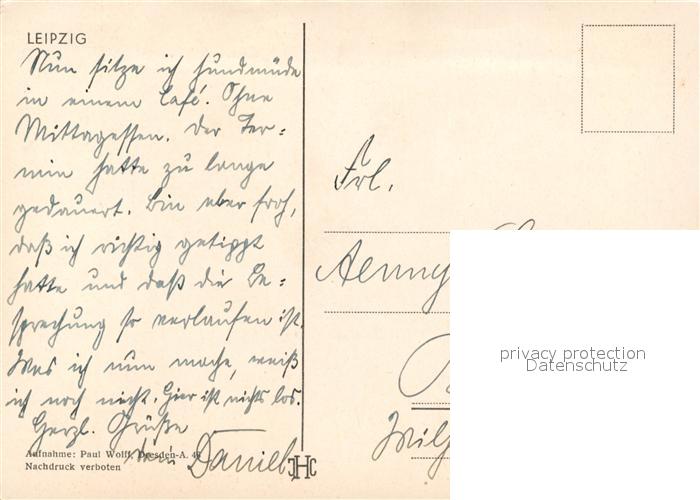 LEIPZIG
Nun sitze ich hundmüde
in einem Café. Ohne
Mittagessen. Der Ter=
min hatte zu lange
gedauert. Bin aber froh,
daß ich richtig getippt
hatte und daß die Be=
sprechung so verlaufen ist.
Was ich nun mache, weiß
ich noch nicht. Hier ist nichts los.
Herzl. Grüße
Dein Daniel
Aufnahme: Paul Wolff, Dresden-A. 46
Nachdruck verboten
JHC
Frl.
Aenny
privacy protection
Datenschutz